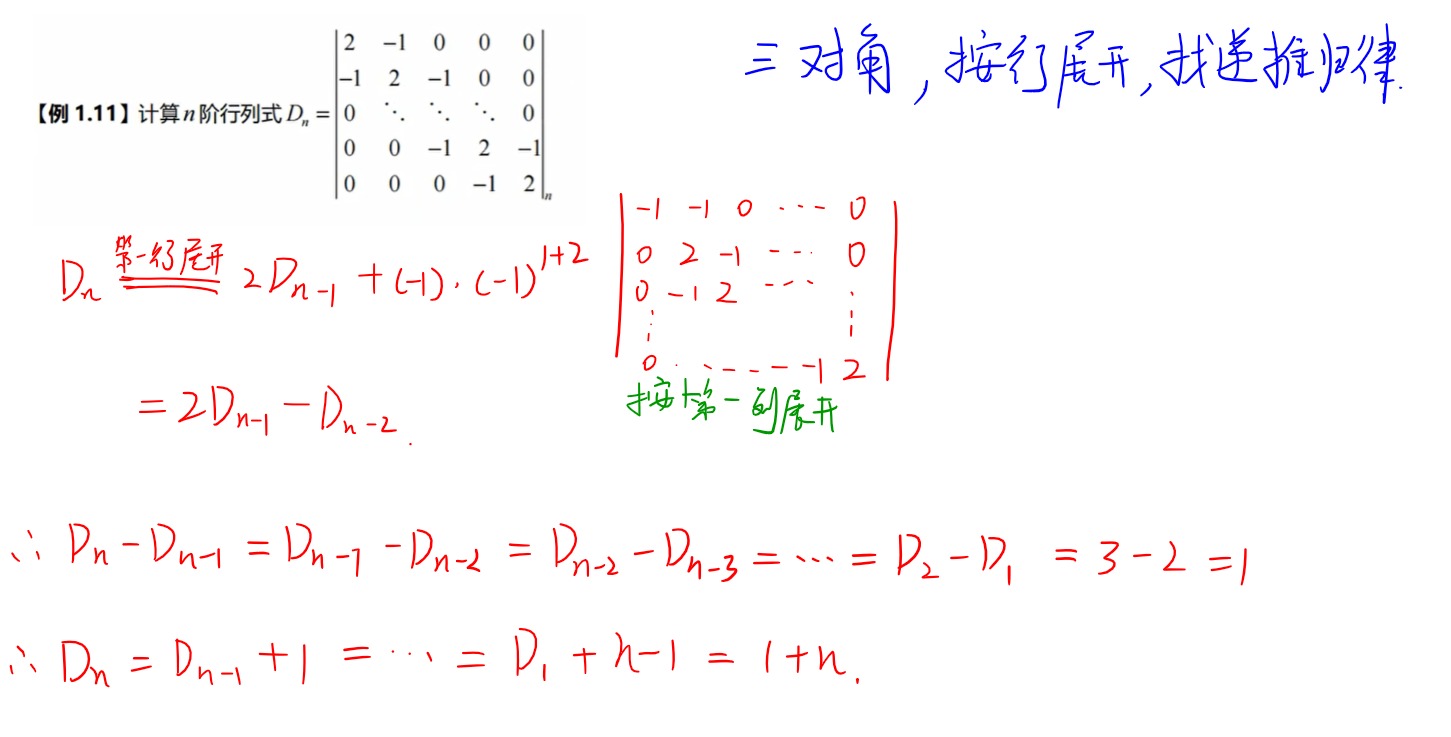 三对角，按行展开，找递推归律.
【例 1.11】计算n阶行列式 Dₙ =
|2 −1 0 0 0|
|−1 2 −1 0 0|
|0 ⋱ ⋱ ⋱ 0|
|0 0 −1 2 −1|
|0 0 0 −1 2|ₙ
Dₙ 第一行展开 2Dₙ₋₁ + (-1)·(-1)¹⁺²
|-1 -1 0 ··· 0|
|0 2 -1 ··· 0|
|0 -1 2 ··· ⋮|
|⋮ ⋮|
|0 ··· -1 2|
按第一列展开
= 2Dₙ₋₁ − Dₙ₋₂.
∴ Dₙ − Dₙ₋₁ = Dₙ₋₁ − Dₙ₋₂ = Dₙ₋₂ − Dₙ₋₃ = ··· = D₂ − D₁ = 3 − 2 = 1
∴ Dₙ = Dₙ₋₁ + 1 = ··· = D₁ + n−1 = 1+n.